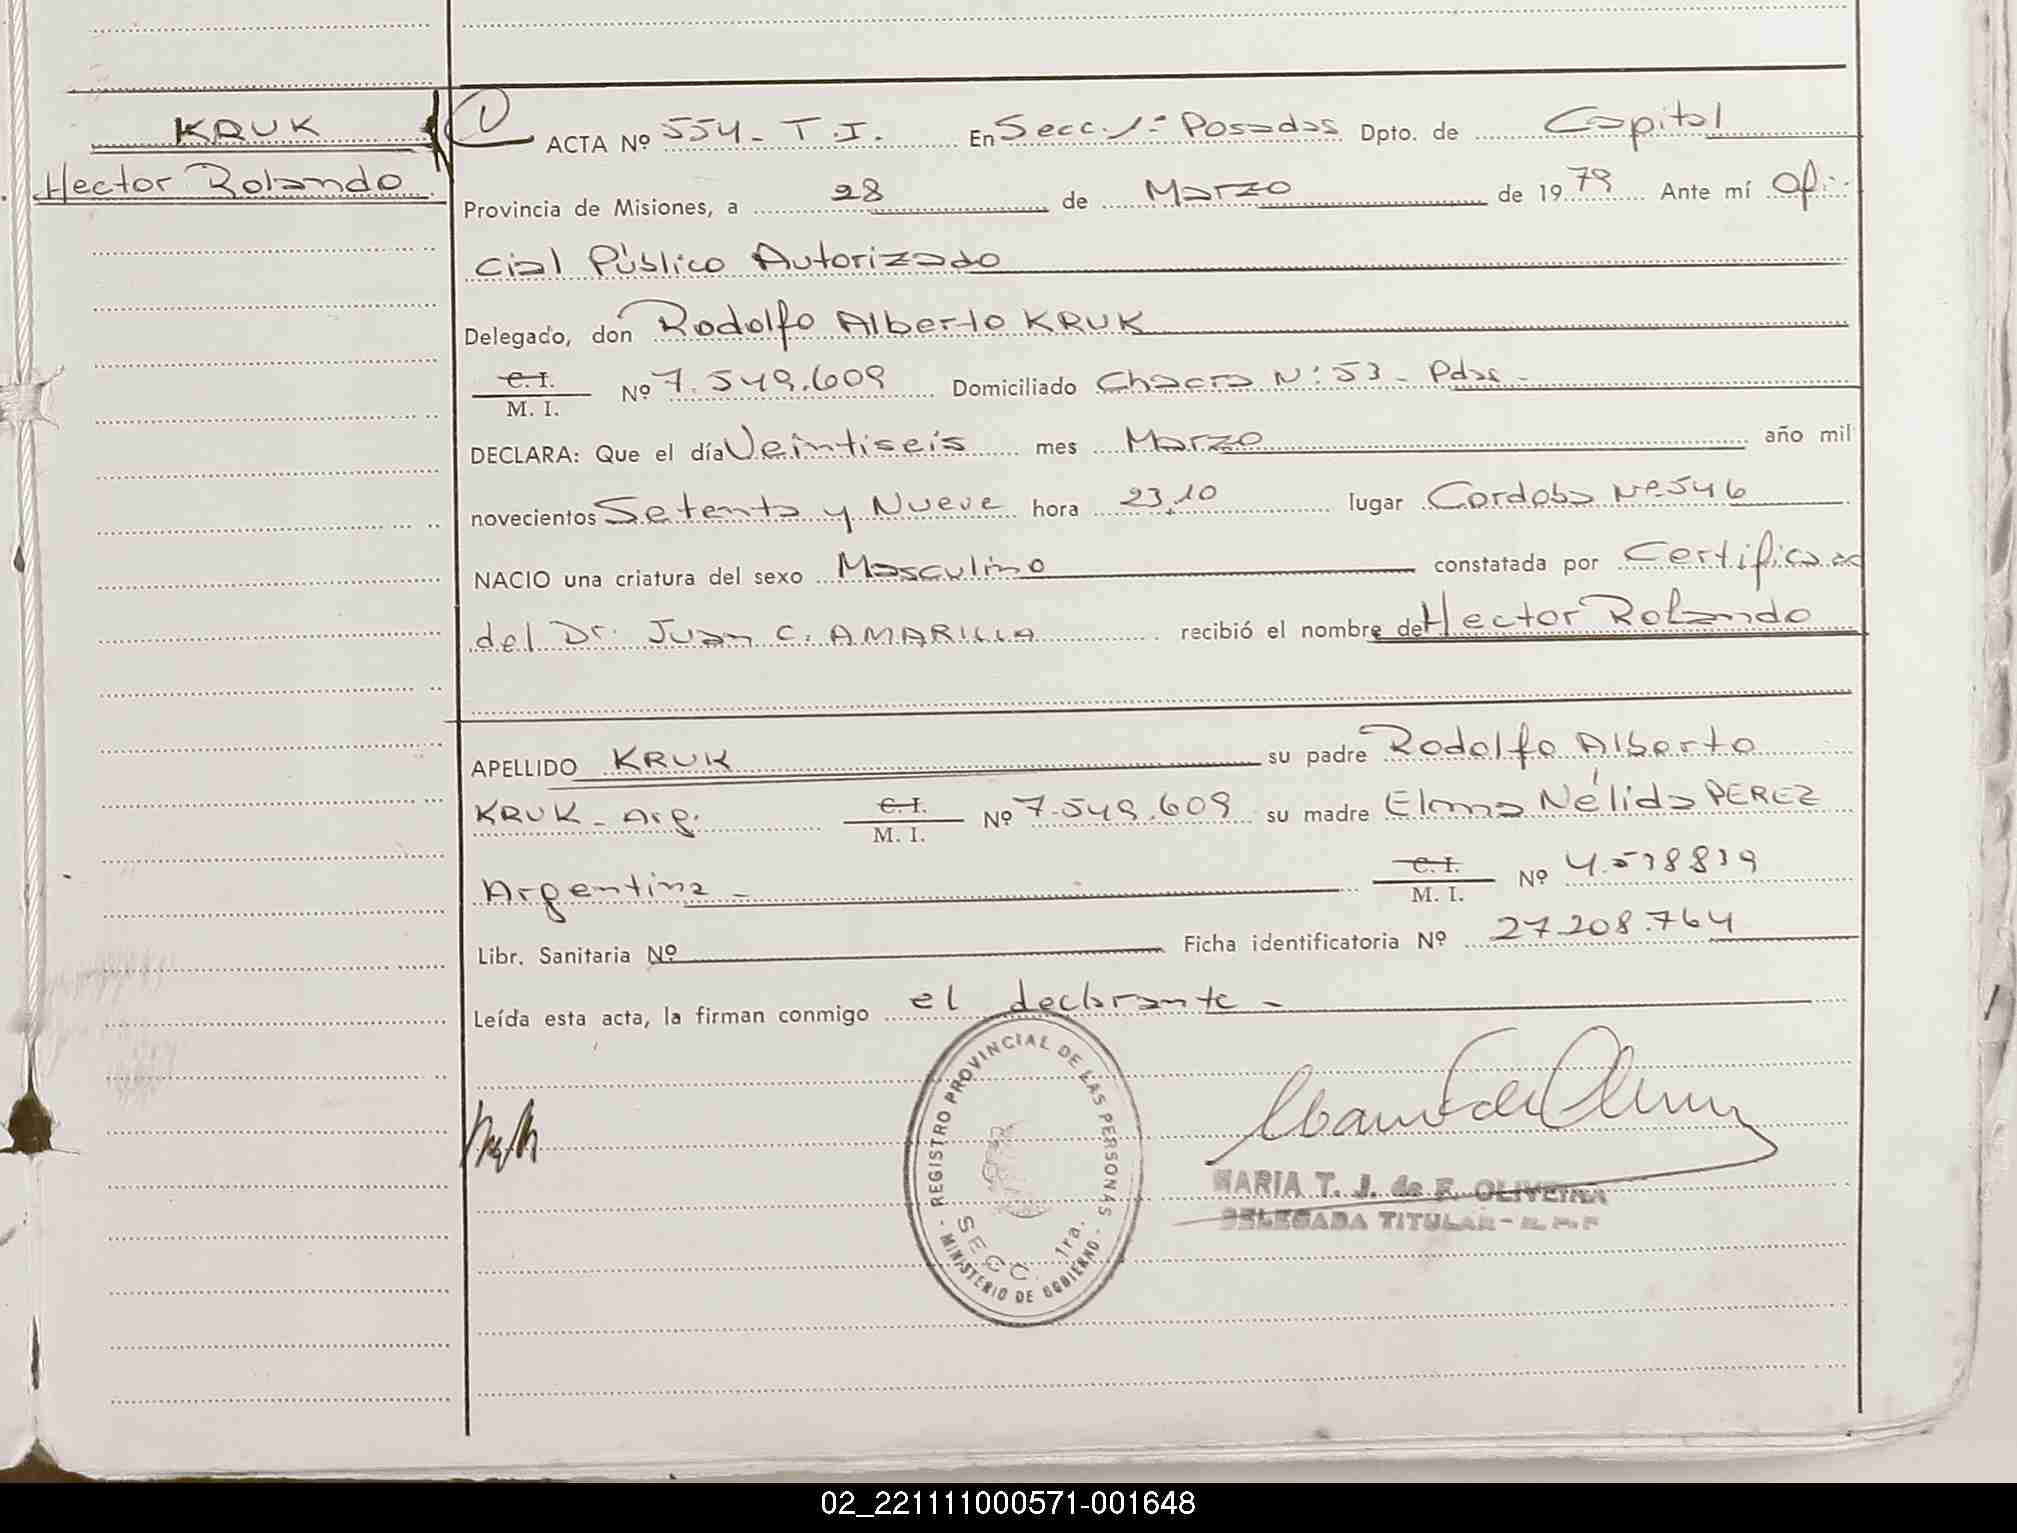 KRUK
Hector Rolando
ACTA Nº 554 - T.I. En Secc. 1ª Posadas Dpto. de Capital
Provincia de Misiones, a 28 de Marzo de 1979 Ante mí Ofi-
cial Público Autorizado
Delegado, don Rodolfo Alberto KRUK
C. I.
M. I. Nº 7.549.609 Domiciliado Chacra Nº 53 - Pdas -
DECLARA: Que el día Veintiseis mes Marzo año mil
novecientos Setenta y Nueve hora 23,10 lugar Cordoba Nº 546
NACIO una criatura del sexo Masculino constatada por Certificado
del Dr. Juan C. AMARILLA recibió el nombre de Hector Rolando
APELLIDO KRUK su padre Rodolfo Alberto
KRUK - Arg. C. I.
M. I. Nº 7.549.609 su madre Elma Nélida PEREZ
Argentina - C. I.
M. I. Nº 4.538839
Libr. Sanitaria Nº Ficha identificatoria Nº 27.208.764
Leída esta acta, la firman conmigo el declarante -
REGISTRO PROVINCIAL DE LAS PERSONAS
SECC. 1ra.
- MINISTERIO DE GOBIERNO -
MARIA T. J. de F. OLIVEIRA
DELEGADA TITULAR - R.P.P
02_221111000571-001648